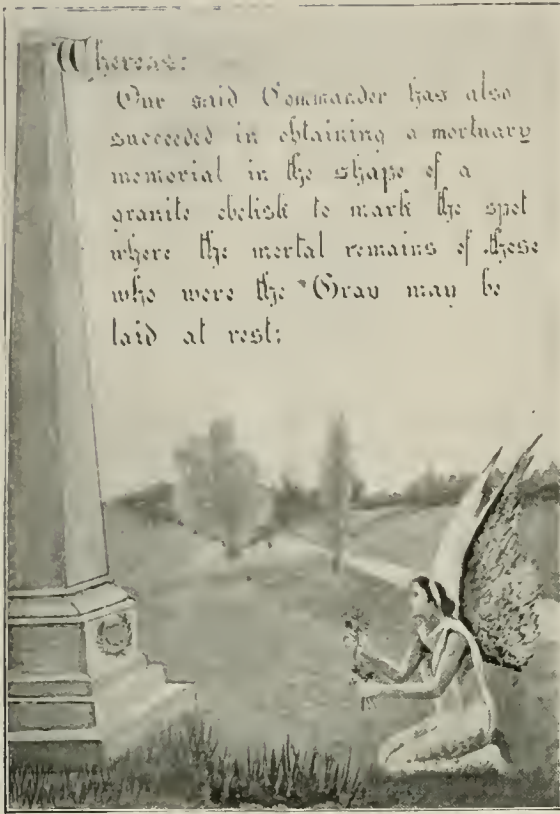 Whereas:
Our said Commander has also
succeeded in obtaining a mortuary
memorial in the shape of a
granite obelisk to mark the spot
where the mortal remains of those
who wore the Gray may be
laid at rest: